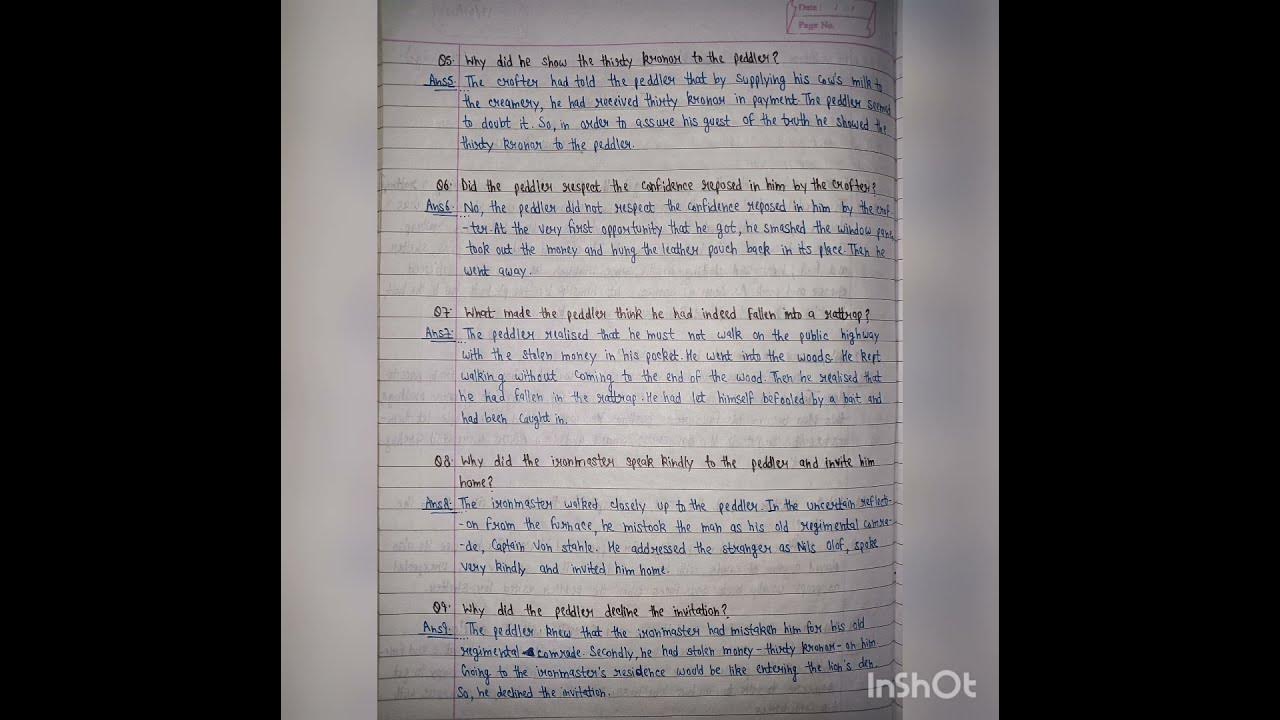 Date
Page No.
Q5. Why did he show the thirty kronor to the peddler?
Ans5. The crofter had told the peddler that by supplying his cow's milk to
the creamery, he had received thirty kronor in payment. The peddler seemed
to doubt it. So, in order to assure his guest of the truth he showed the
thirty kronor to the peddler.
Q6. Did the peddler respect the confidence reposed in him by the crofter?
Ans6. No, the peddler did not respect the confidence reposed in him by the crof-
-ter. At the very first opportunity that he got, he smashed the window pane,
took out the money and hung the leather pouch back in its place. Then he
went away.
Q7. What made the peddler think he had indeed fallen into a rattrap?
Ans7. The peddler realised that he must not walk on the public highway
with the stolen money in his pocket. He went into the woods. He kept
walking without coming to the end of the wood. Then he realised that
he had fallen in the rattrap. He had let himself befooled by a bait and
had been caught in.
Q8. Why did the ironmaster speak kindly to the peddler and invite him
home?
Ans8. The ironmaster walked closely up to the peddler. In the uncertain reflecti-
-on from the furnace, he mistook the man as his old regimental comra-
-de, Captain Von stahle. He addressed the stranger as Nils Olof, spoke
very kindly and invited him home.
Q9. Why did the peddler decline the invitation?
Ans9. The peddler knew that the ironmaster had mistaken him for his old
regimental comrade. Secondly, he had stolen money - thirty kronor - on him.
Going to the ironmaster's residence would be like entering the lion's den.
So, he declined the invitation.
InShOt